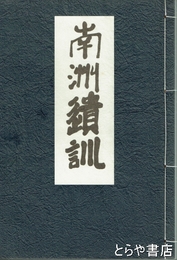 南洲蹟訓
とらや書店